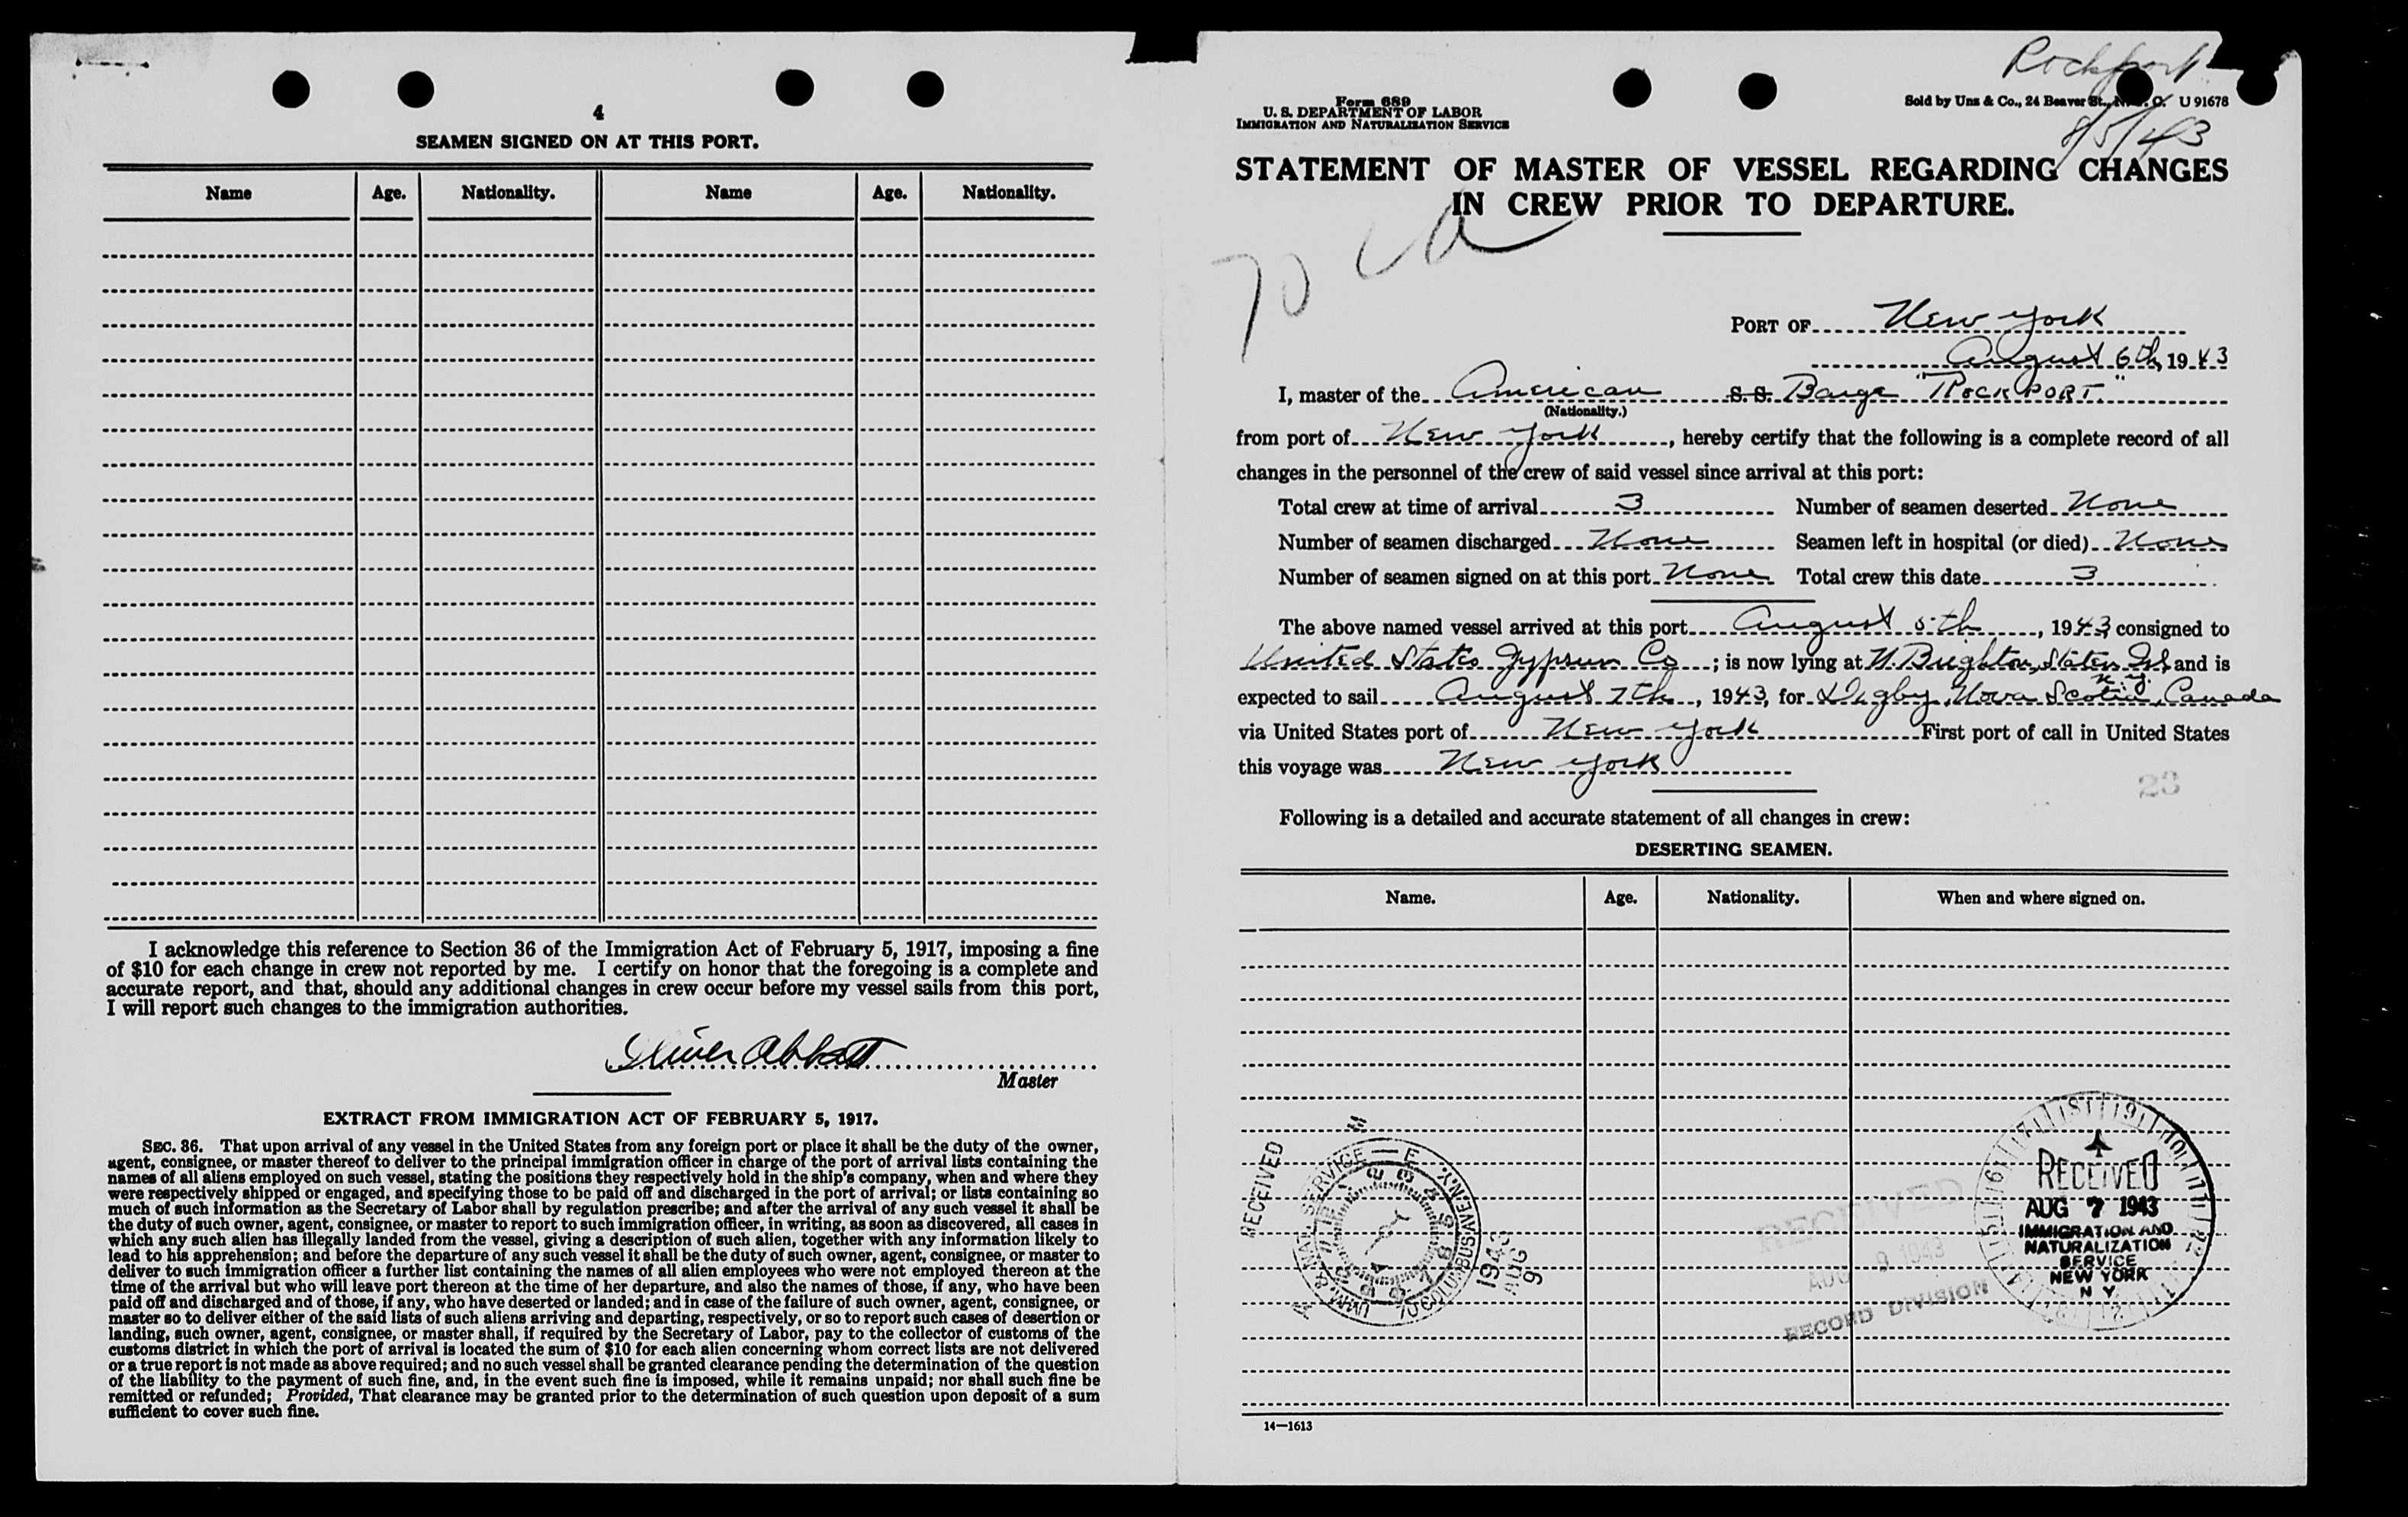 4
SEAMEN SIGNED ON AT THIS PORT.
Name Age. Nationality. Name Age. Nationality.
I acknowledge this reference to Section 36 of the Immigration Act of February 5, 1917, imposing a fine
of $10 for each change in crew not reported by me. I certify on honor that the foregoing is a complete and
accurate report, and that, should any additional changes in crew occur before my vessel sails from this port,
I will report such changes to the immigration authorities.
Oliver Abbott
Master
EXTRACT FROM IMMIGRATION ACT OF FEBRUARY 5, 1917.
SEC. 36. That upon arrival of any vessel in the United States from any foreign port or place it shall be the duty of the owner,
agent, consignee, or master thereof to deliver to the principal immigration officer in charge of the port of arrival lists containing the
names of all aliens employed on such vessel, stating the positions they respectively hold in the ship's company, when and where they
were respectively shipped or engaged, and specifying those to be paid off and discharged in the port of arrival; or lists containing so
much of such information as the Secretary of Labor shall by regulation prescribe; and after the arrival of any such vessel it shall be
the duty of such owner, agent, consignee, or master to report to such immigration officer, in writing, as soon as discovered, all cases in
which any such alien has illegally landed from the vessel, giving a description of such alien, together with any information likely to
lead to his apprehension; and before the departure of any such vessel it shall be the duty of such owner, agent, consignee, or master to
deliver to such immigration officer a further list containing the names of all alien employees who were not employed thereon at the
time of the arrival but who will leave port thereon at the time of her departure, and also the names of those, if any, who have been
paid off and discharged and of those, if any, who have deserted or landed; and in case of the failure of such owner, agent, consignee, or
master so to deliver either of the said lists of such aliens arriving and departing, respectively, or so to report such cases of desertion or
landing, such owner, agent, consignee, or master shall, if required by the Secretary of Labor, pay to the collector of customs of the
customs district in which the port of arrival is located the sum of $10 for each alien concerning whom correct lists are not delivered
or a true report is not made as above required; and no such vessel shall be granted clearance pending the determination of the question
of the liability to the payment of such fine, and, in the event such fine is imposed, while it remains unpaid; nor shall such fine be
remitted or refunded; Provided, That clearance may be granted prior to the determination of such question upon deposit of a sum
sufficient to cover such fine.
Rockport
Form 689
U. S. DEPARTMENT OF LABOR
IMMIGRATION AND NATURALIZATION SERVICE
Sold by Unz & Co., 24 Beaver St., N. Y. C. U 91678
8/5/43
STATEMENT OF MASTER OF VESSEL REGARDING CHANGES
IN CREW PRIOR TO DEPARTURE.
70
PORT OF New York
August 6th, 1943
I, master of the American S. S. Barge "ROCKPORT."
(Nationality.)
from port of New York, hereby certify that the following is a complete record of all
changes in the personnel of the crew of said vessel since arrival at this port:
Total crew at time of arrival 3 Number of seamen deserted None
Number of seamen discharged None Seamen left in hospital (or died) None
Number of seamen signed on at this port None Total crew this date 3
The above named vessel arrived at this port August 5th, 1943, consigned to
United States Gypsum Co; is now lying at N. Brighton, Staten Isl and is
N.Y.
expected to sail August 7th, 1943, for Digby, Nova Scotia, Canada
via United States port of New York First port of call in United States
this voyage was New York
23
Following is a detailed and accurate statement of all changes in crew:
DESERTING SEAMEN.
Name. Age. Nationality. When and where signed on.
RECEIVED
IMM. & NAT. SERVICE
70 COLUMBUS AVE. N.Y.
1943
AUG
9
RECEIVED
AUG 9 1943
RECORD DIVISION
RECEIVED
AUG 7 1943
IMMIGRATION AND
NATURALIZATION
SERVICE
NEW YORK
N Y
14—1613